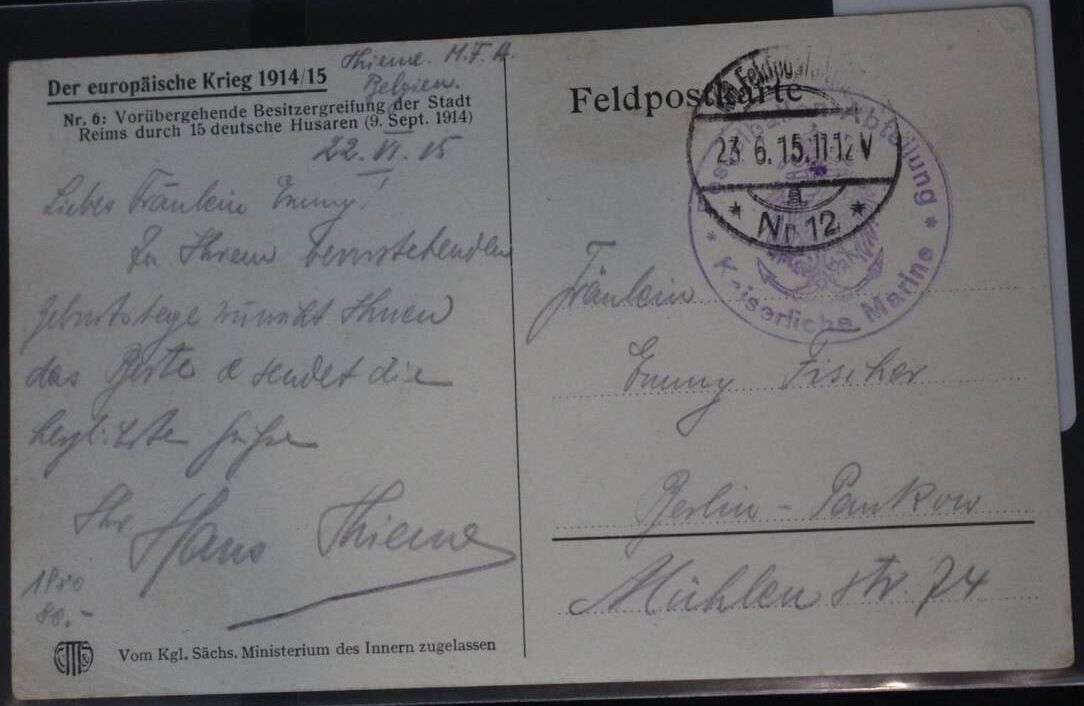 Der europäische Krieg 1914/15
Nr. 6: Vorübergehende Besitzergreifung der Stadt
Reims durch 15 deutsche Husaren (9. Sept. 1914)
Thieme. M.F.A.
Belgien.
22. VI. 15
Liebes Fräulein Emmy!
Zu Ihrem bevorstehenden
Geburtstage wünscht Ihnen
das Beste & sendet die
herzlichsten Grüsse
Ihr Hans Thieme
80.-
Vom Kgl. Sächs. Ministerium des Innern zugelassen
Feldpostkarte
23.6.15.11-12V
a
* Nr. 12. *
Abteilung
* Kaiserliche Marine *
Fräulein
Emmy Fischer
Berlin - Pankow
Mühlenstr. 74